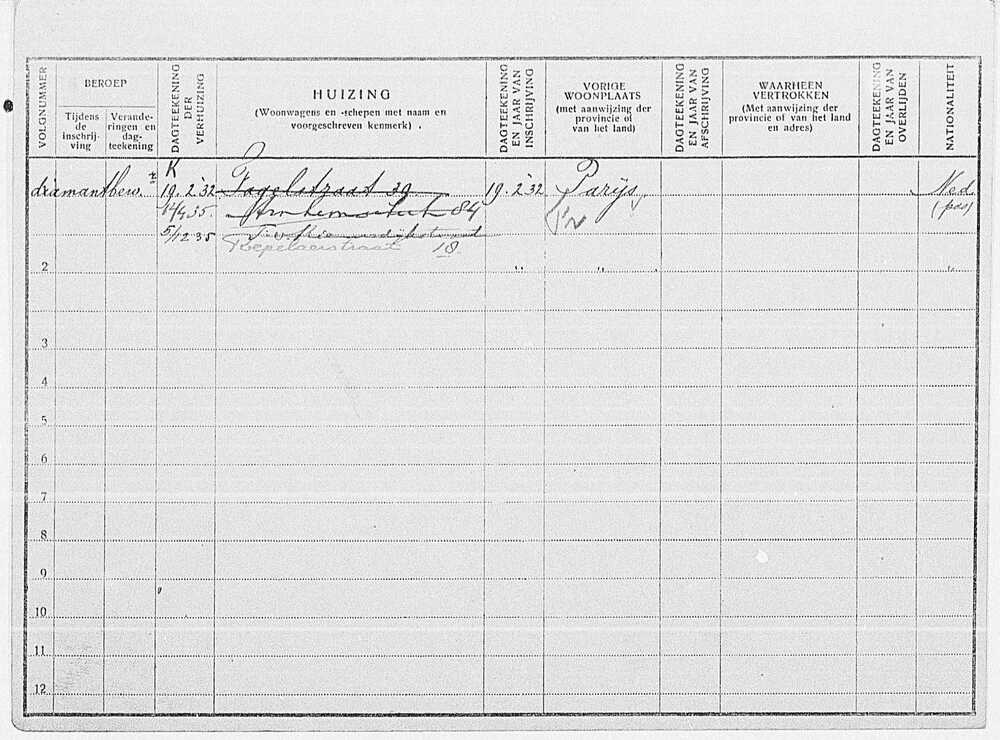 VOLGNUMMER
BEROEP
Tijdens de inschrij-ving
Verande-ringen en dag-teekening
DAGTEEKENING DER VERHUIZING
HUIZING
(Woonwagens en -schepen met naam en voorgeschreven kenmerk) .
DAGTEEKENING EN JAAR VAN INSCHRIJVING
VORIGE WOONPLAATS
(met aanwijzing der provincie of van het land)
DAGTEEKENING EN JAAR VAN AFSCHRIJVING
WAARHEEN VERTROKKEN
(Met aanwijzing der provincie of van het land en adres)
DAGTEEKENING EN JAAR VAN OVERLIJDEN
NATIONALITEIT
K
diamantbew. 19.2.'32 Fagelstraat 39 19.2.'32 Parijs Ned.
84 (pas)
5/12 35
Repelaerstraat 18
2 " " "
3
4
5
6
7
8
9
10
11
12